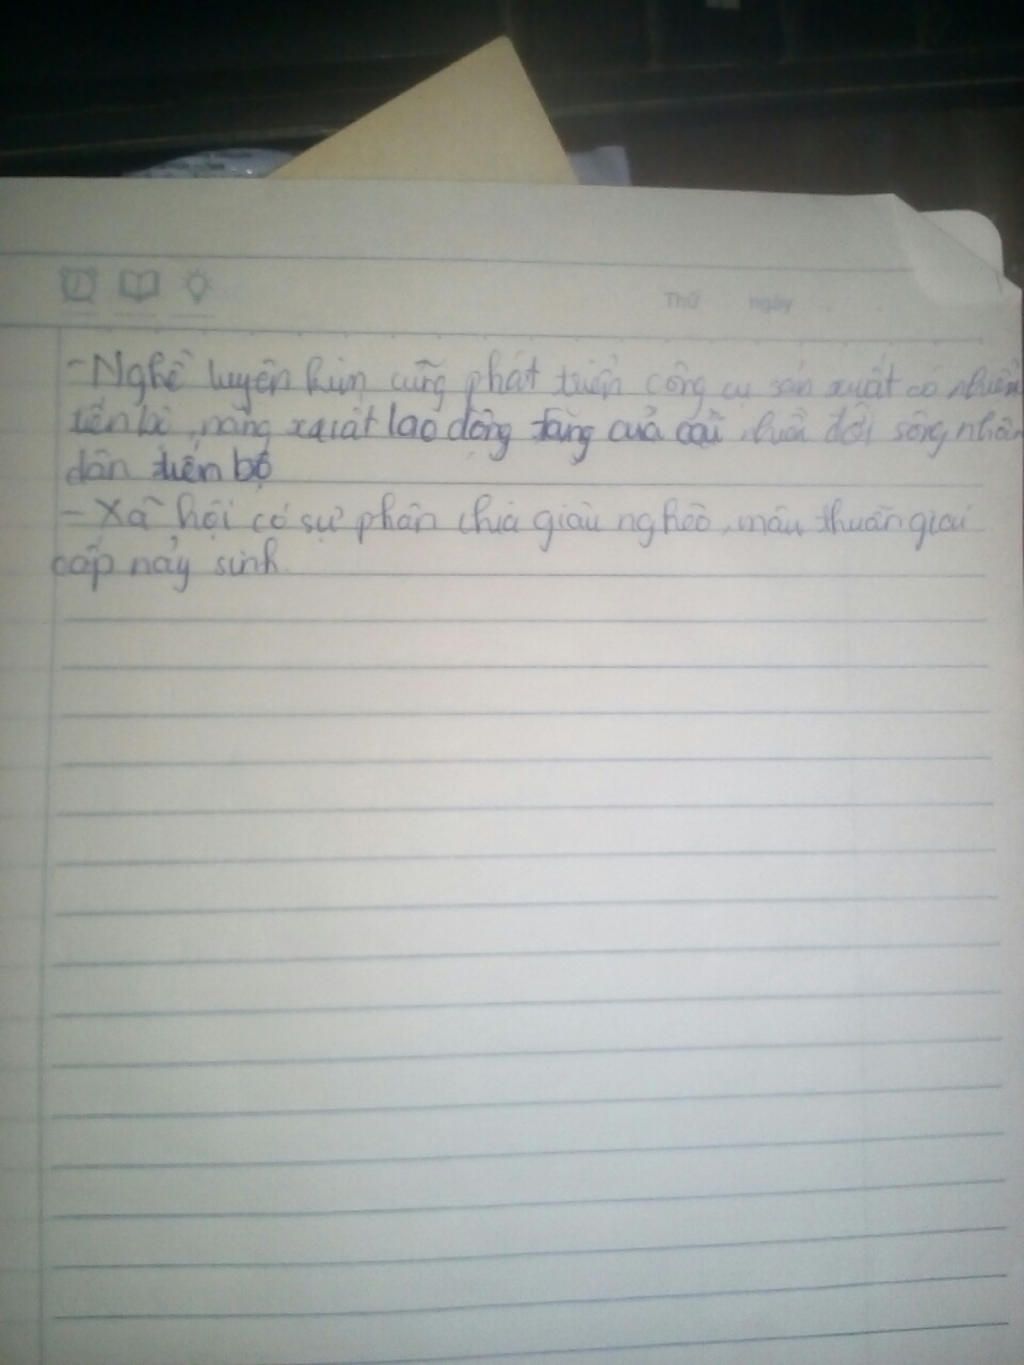 Thứ ngày
- Nghề luyện kim cũng phát triển công cụ sản xuất có nhiều
tiến bộ, năng xuất lao động tăng của cải nhiều đời sống nhân
dân tiến bộ
- Xã hội có sự phân chia giàu nghèo, mâu thuẫn giai
cấp nảy sinh.